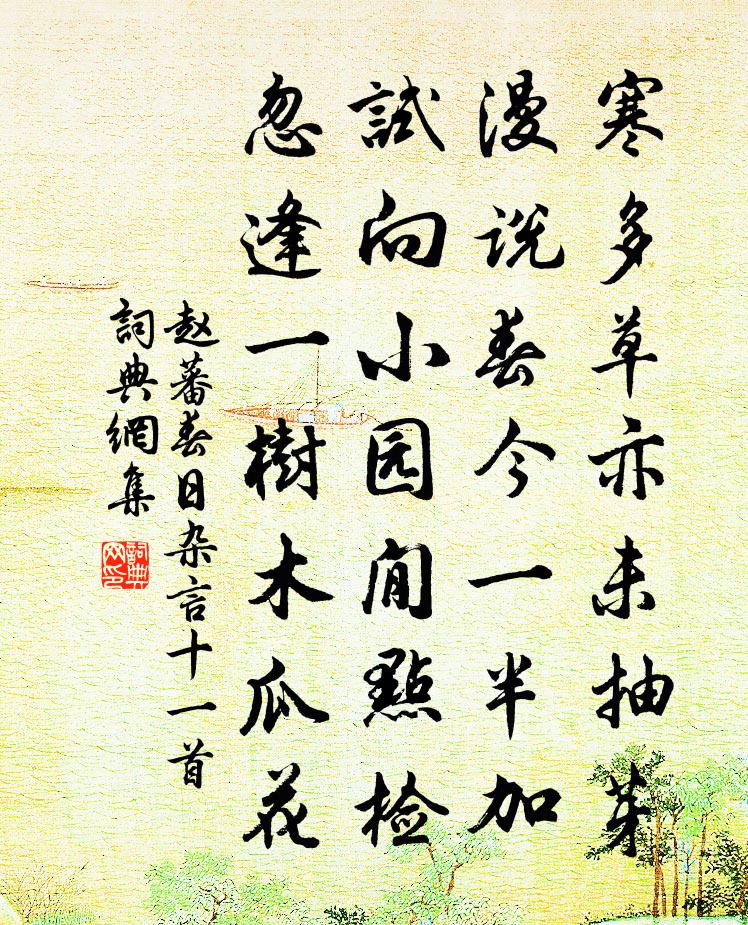 寒多草亦未抽芽
漫说春今一半加
試向小园閒點检
忽逢一樹木瓜花
赵蕃春日杂言十一首
詞典網集
詞典网印